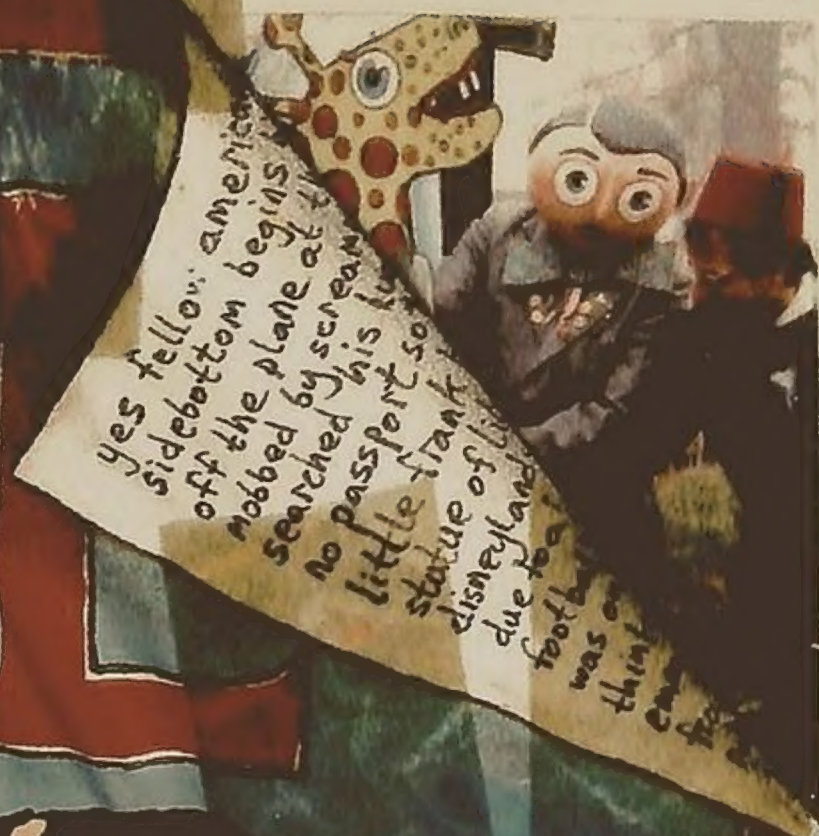 yes fellow american
sidebottom begins
off the plane at
mobbed by scream
searched his
no passport so
little frank
statue of li
disneyland
due to a
footbal
was o
think